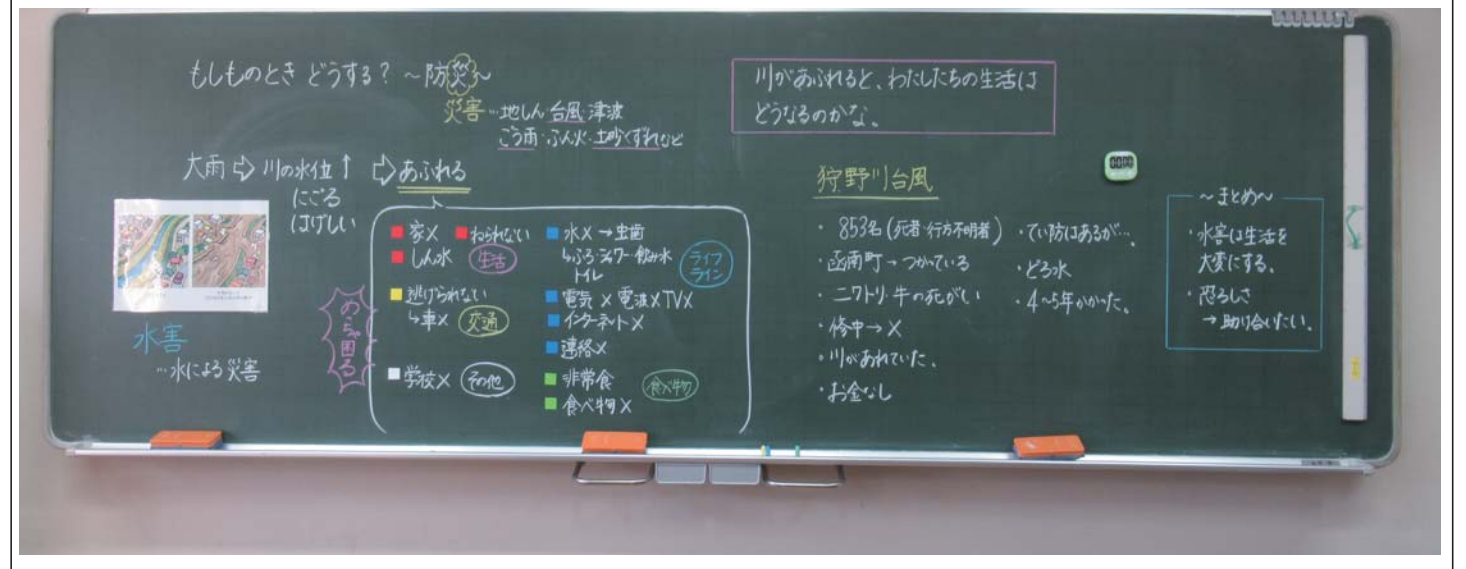 もしものとき どうする？ ～防災～
災害…地しん・台風・津波
ごう雨・ふん火・土砂くずれなど
大雨⇨川の水位↑ ⇨あふれる
にごる
はげしい
水害
…水による災害
めっちゃ困る
■家× ■ねられない
■しん水 生活
■逃げられない
↳車× 交通
■学校× その他
■水×→虫歯
↳ふろ・シャワー・飲み水
トイレ
ライフ
ライン
■電気× 電波×TV×
■インターネット×
■連絡×
■非常食
■食べ物×
食べ物
川があふれると、わたしたちの生活は
どうなるのかな。
狩野川台風
・853名(死者・行方不明者)
・函南町→つかっている
・ニワトリ・牛の死がい
・修中→×
・川があれていた、
・お金なし
・てい防はあるが…、
・どろ水
・4～5年かかった。
～まとめ～
・水害は生活を
大変にする、
・恐ろしさ
→助け合いたい。
00:00